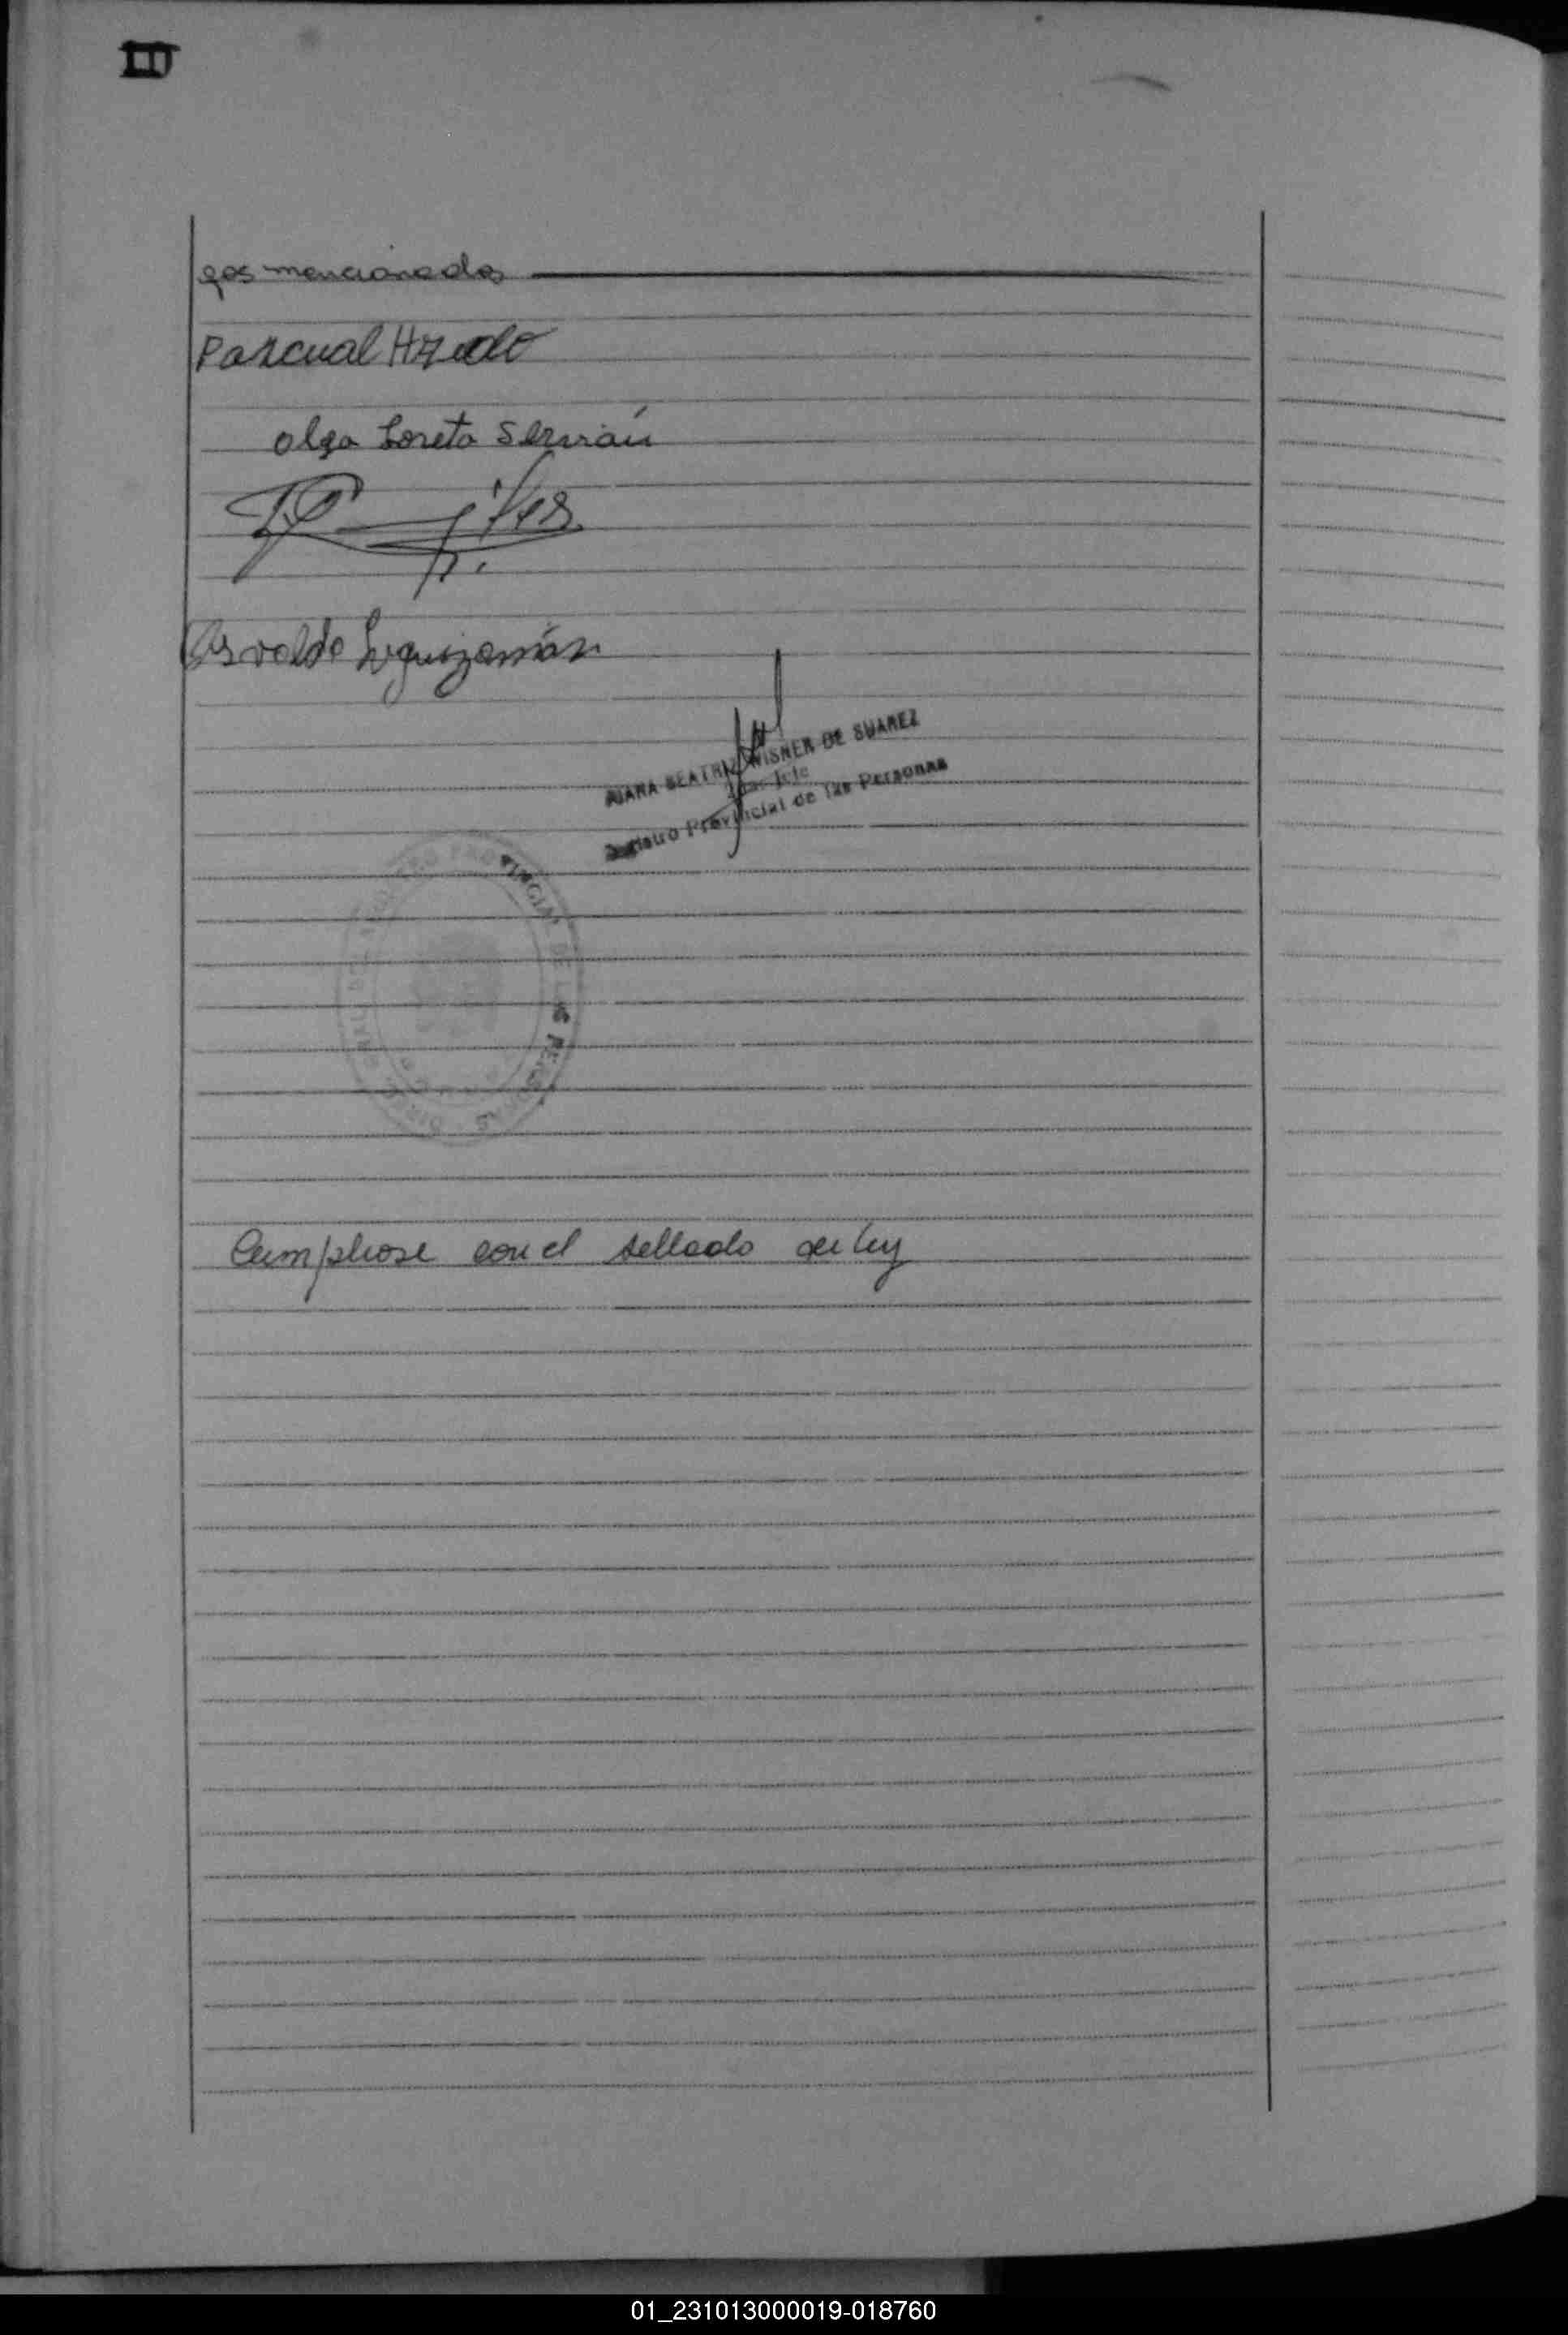 III
gos mencionados
Pascual Azedo
Olga Loreta Servián
Osvaldo Leguizamón
JUANA BEATRIZ WISNER DE SUAREZ
Jefe
Registro Provincial de las Personas
VINCIAL DE LAS PERSO
Cumpliose con el sellado de ley
01_231013000019-018760